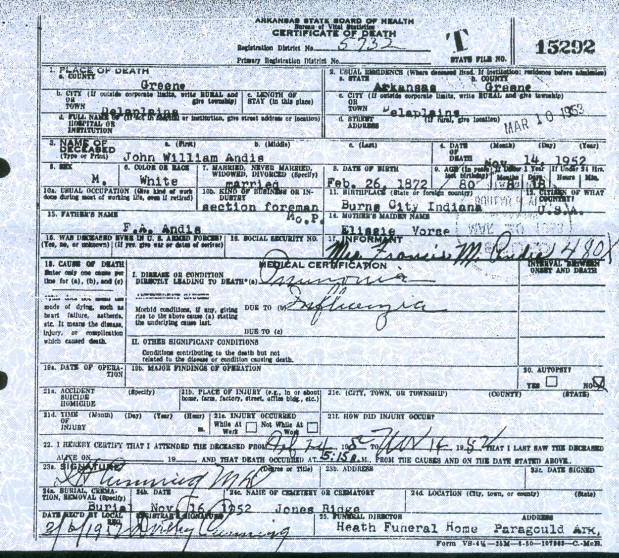 ARKANSAS STATE BOARD OF HEALTH
Bureau of Vital Statistics
CERTIFICATE OF DEATH
Registration District No. 5732
Primary Registration District No.
T
STATE FILE NO.
15292
1. PLACE OF DEATH
a. COUNTY
Greene
2. USUAL RESIDENCE (Where deceased lived. If institution: residence before admission)
a. STATE b. COUNTY
Arkansas Greene
b. CITY (If outside corporate limits, write RURAL and give township)
OR
TOWN
Delaplaine
c. LENGTH OF STAY (in this place)
c. CITY (If outside corporate limits, write RURAL and give township)
OR
TOWN
Delaplaine
d. FULL NAME OF (If not in hospital or institution, give street address or location)
HOSPITAL OR
INSTITUTION
d. STREET (If rural, give location)
ADDRESS
MAR 10 1953
3. NAME OF DECEASED
(Type or Print)
a. (First) b. (Middle) c. (Last)
John William Andis
4. DATE OF DEATH (Month) (Day) (Year)
Nov 14, 1952
5. SEX
M.
6. COLOR OR RACE
White
7. MARRIED, NEVER MARRIED, WIDOWED, DIVORCED (Specify)
married
8. DATE OF BIRTH
Feb. 26, 1872
9. AGE (In years last birthday)
80
If Under 1 Year
Months Days
8 18
If Under 24 Hrs.
Hours Min.
10a. USUAL OCCUPATION (Give kind of work done during most of working life, even if retired)
10b. KIND OF BUSINESS OR INDUSTRY
section foreman
Mo.P.
11. BIRTHPLACE (State or foreign country)
Burns City Indiana
12. CITIZEN OF WHAT COUNTRY?
U.S.A.
13. FATHER'S NAME
F.A. Andis
14. MOTHER'S MAIDEN NAME
Elissie Vorse
15. WAS DECEASED EVER IN U.S. ARMED FORCES?
(Yes, no, or unknown) (If yes, give war or dates of service)
16. SOCIAL SECURITY NO.
17. INFORMANT
Mrs Francis M. Andis
490X
18. CAUSE OF DEATH
Enter only one cause per line for (a), (b), and (c)
MEDICAL CERTIFICATION
INTERVAL BETWEEN ONSET AND DEATH
I. DISEASE OR CONDITION DIRECTLY LEADING TO DEATH* (a)
Pneumonia
mode of dying, such as heart failure, asthenia, etc. It means the disease, injury, or complication which caused death.
Morbid conditions, if any, giving rise to the above cause (a) stating the underlying cause last.
DUE TO (b)
Influenza
DUE TO (c)
II. OTHER SIGNIFICANT CONDITIONS
Conditions contributing to the death but not related to the disease or condition causing death.
19a. DATE OF OPERATION
19b. MAJOR FINDINGS OF OPERATION
20. AUTOPSY?
YES NO
21a. ACCIDENT (Specify)
SUICIDE
HOMICIDE
21b. PLACE OF INJURY (e.g., in or about home, farm, factory, street, office bldg., etc.)
21c. (CITY, TOWN, OR TOWNSHIP) (COUNTY) (STATE)
21d. TIME (Month) (Day) (Year) (Hour)
OF
INJURY m.
21e. INJURY OCCURRED
While At Work Not While At Work
21f. HOW DID INJURY OCCUR?
22. I HEREBY CERTIFY THAT I ATTENDED THE DECEASED FROM 1952 TO Nov 14 1952 THAT I LAST SAW THE DECEASED
ALIVE ON 19 AND THAT DEATH OCCURRED AT 5:15 M., FROM THE CAUSES AND ON THE DATE STATED ABOVE.
23a. SIGNATURE (Degree or Title)
23b. ADDRESS
23c. DATE SIGNED
24a. BURIAL, CREMATION, REMOVAL (Specify)
Burial
24b. DATE
Nov. 16, 1952
24c. NAME OF CEMETERY OR CREMATORY
Jones Ridge
24d. LOCATION (City, town, or county) (State)
DATE REC'D BY LOCAL REG.
REGISTRAR'S SIGNATURE
25. FUNERAL DIRECTOR ADDRESS
Heath Funeral Home Paragould Ark.
Form VS-